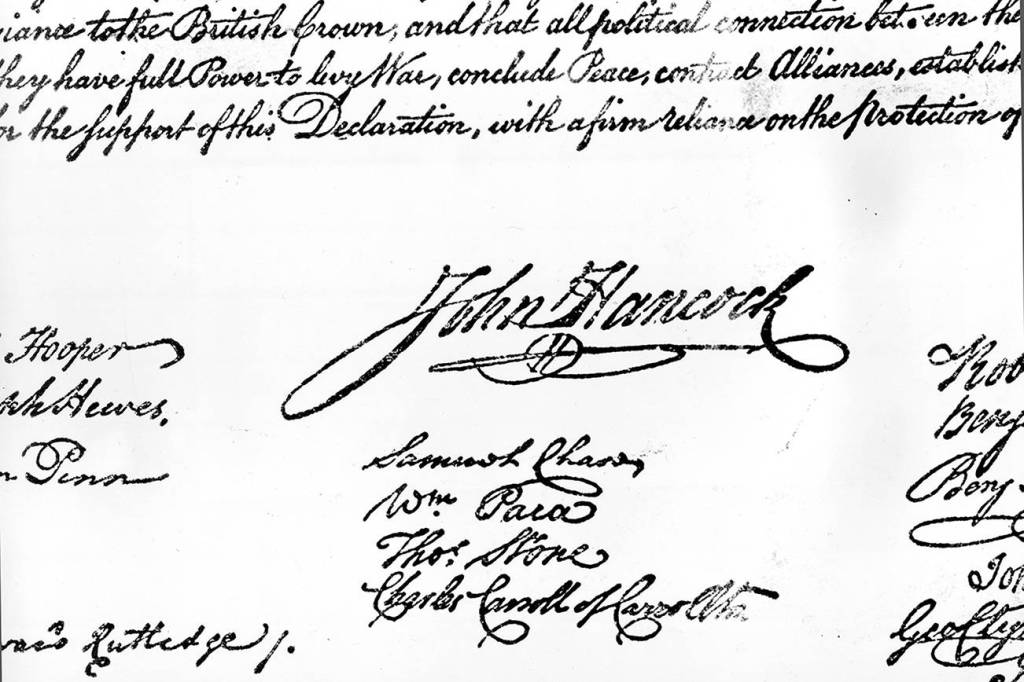 iance to the British Crown, and that all political connection between the
they have full Power to levy War, conclude Peace, contract Alliances, establish
for the support of this Declaration, with a firm reliance on the Protection of
John Hancock
Hooper
Hewes,
Penn
Rutledge /.
Samuel Chase
Wm. Paca
Thos. Stone
Charles Carroll of Carrollton
Rob
Benj
Benj
Joh
Geo Cly